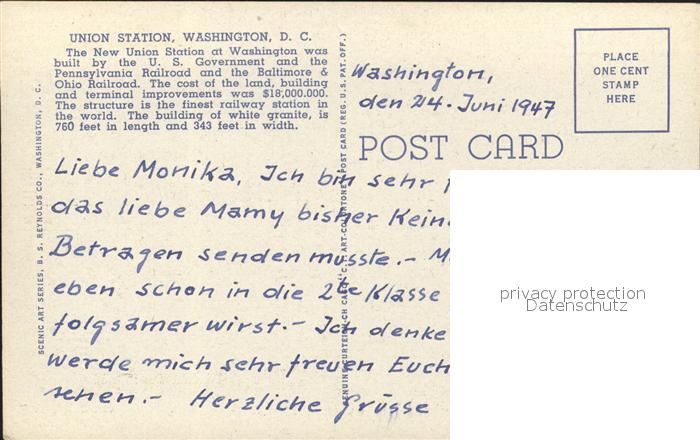 UNION STATION, WASHINGTON, D. C.
The New Union Station at Washington was
built by the U. S. Government and the
Pennsylvania Railroad and the Baltimore &
Ohio Railroad. The cost of the land, building
and terminal improvements was $18,000.000.
The structure is the finest railway station in
the world. The building of white granite, is
760 feet in length and 343 feet in width.
SCENIC ART SERIES, B. S. REYNOLDS CO., WASHINGTON, D. C.
POST CARD (REG. U. S. PAT. OFF.)
PLACE
ONE CENT
STAMP
HERE
Washington,
den 24. Juni 1947
POST CARD
Liebe Monika, Ich bin sehr
das liebe Mamy bisher Kein
Betragen senden musste.-
eben schon in die 2te Klasse
folgsamer wirst.- Ich denke
werde mich sehr freuen Euch
sehen.- Herzliche Grüsse
privacy protection
Datenschutz